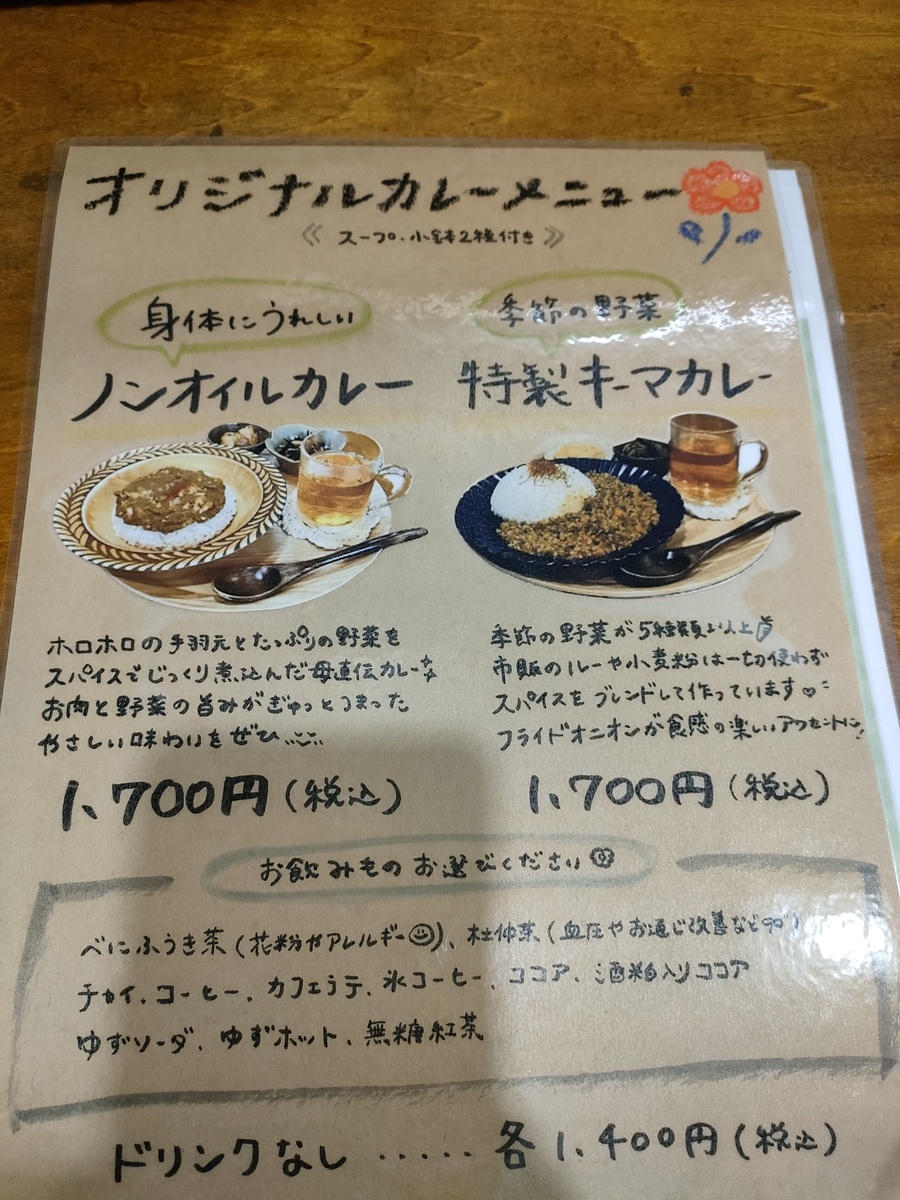 オリジナルカレーメニュー
《スープ・小鉢2種付き》
身体にうれしい
ノンオイルカレー
季節の野菜
特製キーマカレー
ホロホロの手羽元とたっぷりの野菜を
スパイスでじっくり煮込んだ母直伝カレー
お肉と野菜の旨みがぎゅっとつまった
やさしい味わいをぜひ
1,700円(税込)
季節の野菜が5種類以上
市販のルーや小麦粉は一切使わず
スパイスをブレンドして作っています♡
フライドオニオンが食感の楽しいアクセントに!
1,700円(税込)
お飲みものお選びください
べにふうき茶(花粉やアレルギー)、杜仲茶(血圧やお通じ改善など)
チャイ、コーヒー、カフェラテ、氷コーヒー、ココア、酒粕入りココア
ゆずソーダ、ゆずホット、無糖紅茶
ドリンクなし ····· 各1,400円(税込)